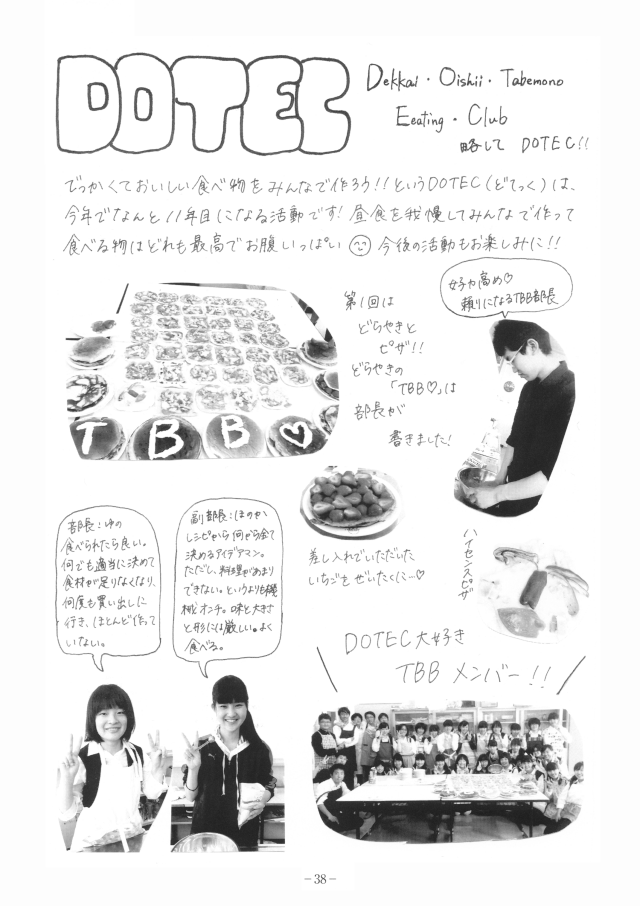 DOTEC
Dekkai・Oishii・Tabemono
Eeating・Club
略して DOTEC!!
でっかくておいしい食べ物をみんなで作ろう!!というDOTEC(どてっく)は、
今年でなんと11年目になる活動です!昼食を我慢してみんなで作って
食べる物はどれも最高でお腹いっぱい 今後の活動もお楽しみに!!
第1回は
どらやきと
ピザ!!
どらやきの
「TBB♡」は
部長が
書きました!
女子力高め♡
頼りになるTBB部長
TBB♡
差し入れでいただいた
いちごもぜいたくに〜♡
ハイセンスピザ
部長:ゆの
食べられたら良い。
何でも適当に決めて
食材が足りなくなり、
何度も買い出しに
行き、ほとんど作って
いない。
副部長:ほのか
レシピから何から全て
決めるアイデアマン。
ただし、料理があまり
できない。というよりも機
械オンチ。味と大きさ
と形には厳しい。よく
食べる。
DOTEC大好き
TBBメンバー!!
－38－